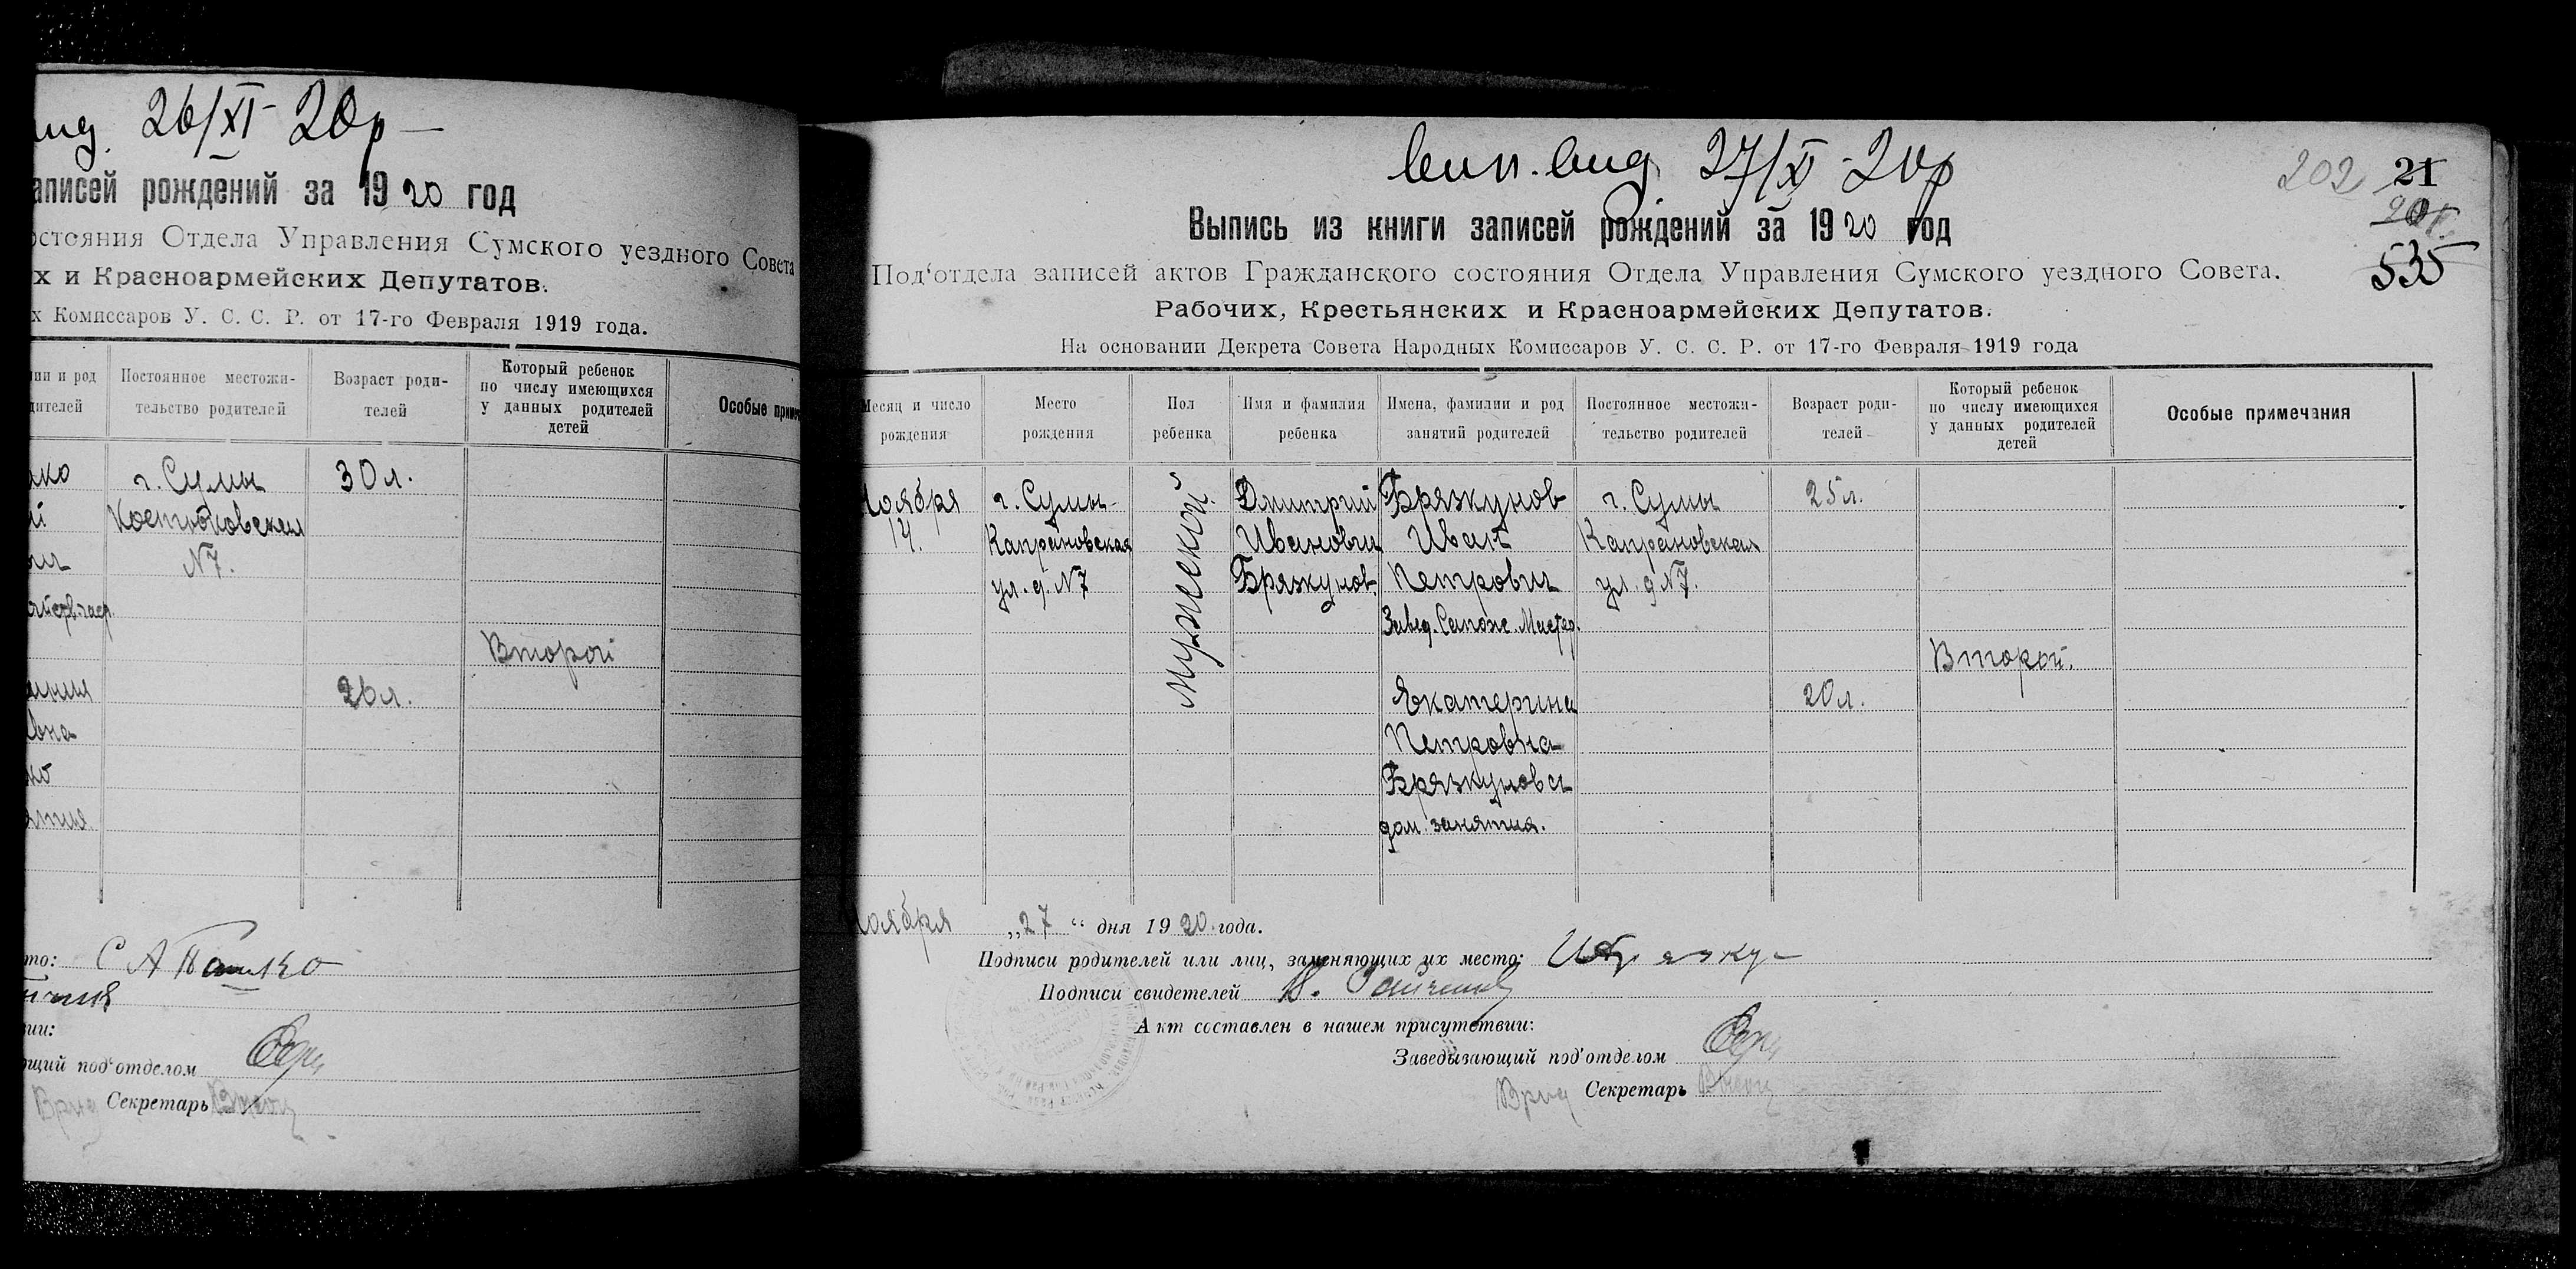 26/XI 20р
аписей рождений за 1920 год
остояния Отдела Управления Сумского уездного Совета
х и Красноармейских Депутатов.
х Комиссаров У. С. С. Р. от 17-го Февраля 1919 года.
нии и род
дителей
Постоянное местожи-
тельство родителей
Возраст роди-
телей
Который ребенок
по числу имеющихся
у данных родителей
детей
Особые приме
г. Сумы
30 л.
N7.
Второй
26 л.
вна
то:
ии:
щий под'отделом
Врид Секретарь
27/XI 20р
202
21
201
535
Выпись из книги записей рождений за 1920 год
Под'отдела записей актов Гражданского состояния Отдела Управления Сумского уездного Совета.
Рабочих, Крестьянских и Красноармейских Депутатов.
На основании Декрета Совета Народных Комиссаров У. С. С. Р. от 17-го Февраля 1919 года
Месяц и число
рождения
Место
рождения
Пол
ребенка
Имя и фамилия
ребенка
Имена, фамилии и род
занятий родителей
Постоянное местожи-
тельство родителей
Возраст роди-
телей
Который ребенок
по числу имеющихся
у данных родителей
детей
Особые примечания
Ноября
14.
г. Сумы
Капрановская
ул. д. N7
мужской
Дмитрий
Иванович
Брязкунов
Брязкунов
Иван
Петрович
Завед. Сапож. Мастер.
Екатерина
Петровна
Брязкунова
дом. занятия.
г. Сумы
Капрановская
ул. д N7.
25 л.
20 л.
Второй.
Ноября „27“ дня 1920 года.
Подписи родителей или лиц, заменяющих их место:
Подписи свидетелей
Акт составлен в нашем присутствии:
Заведывающий под'отделом
Врид Секретарь